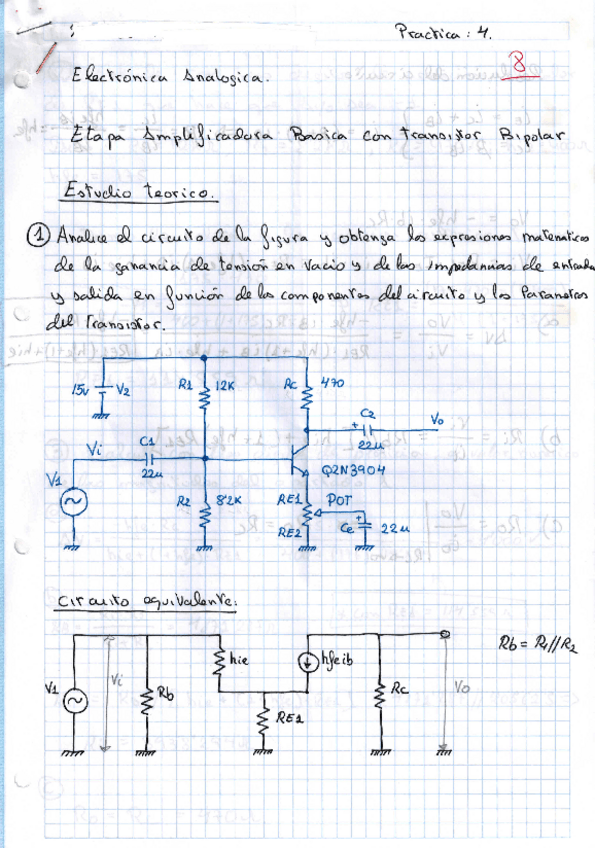 Practica: 4.
8
Electrónica Analogica.
Etapa Amplificadora Basica con transistor Bipolar
Estudio teorico.
① Analice el circuito de la figura y obtenga las expresiones matematicas
de la ganancia de tensión en vacio y de las impedancias de entrada
y salida en función de los componentes del circuito y los Parametros
del Transistor.
15v V2 R1 12K Rc 470
C2 Vo
Vi C1 22u
22u Q2N3904
V1
R2 8'2K RE1 POT
RE2 Ce 22u
Circuito equivalente:
hie hfeib Rb = R1//R2
V1 Vi Rb Rc Vo
RE1